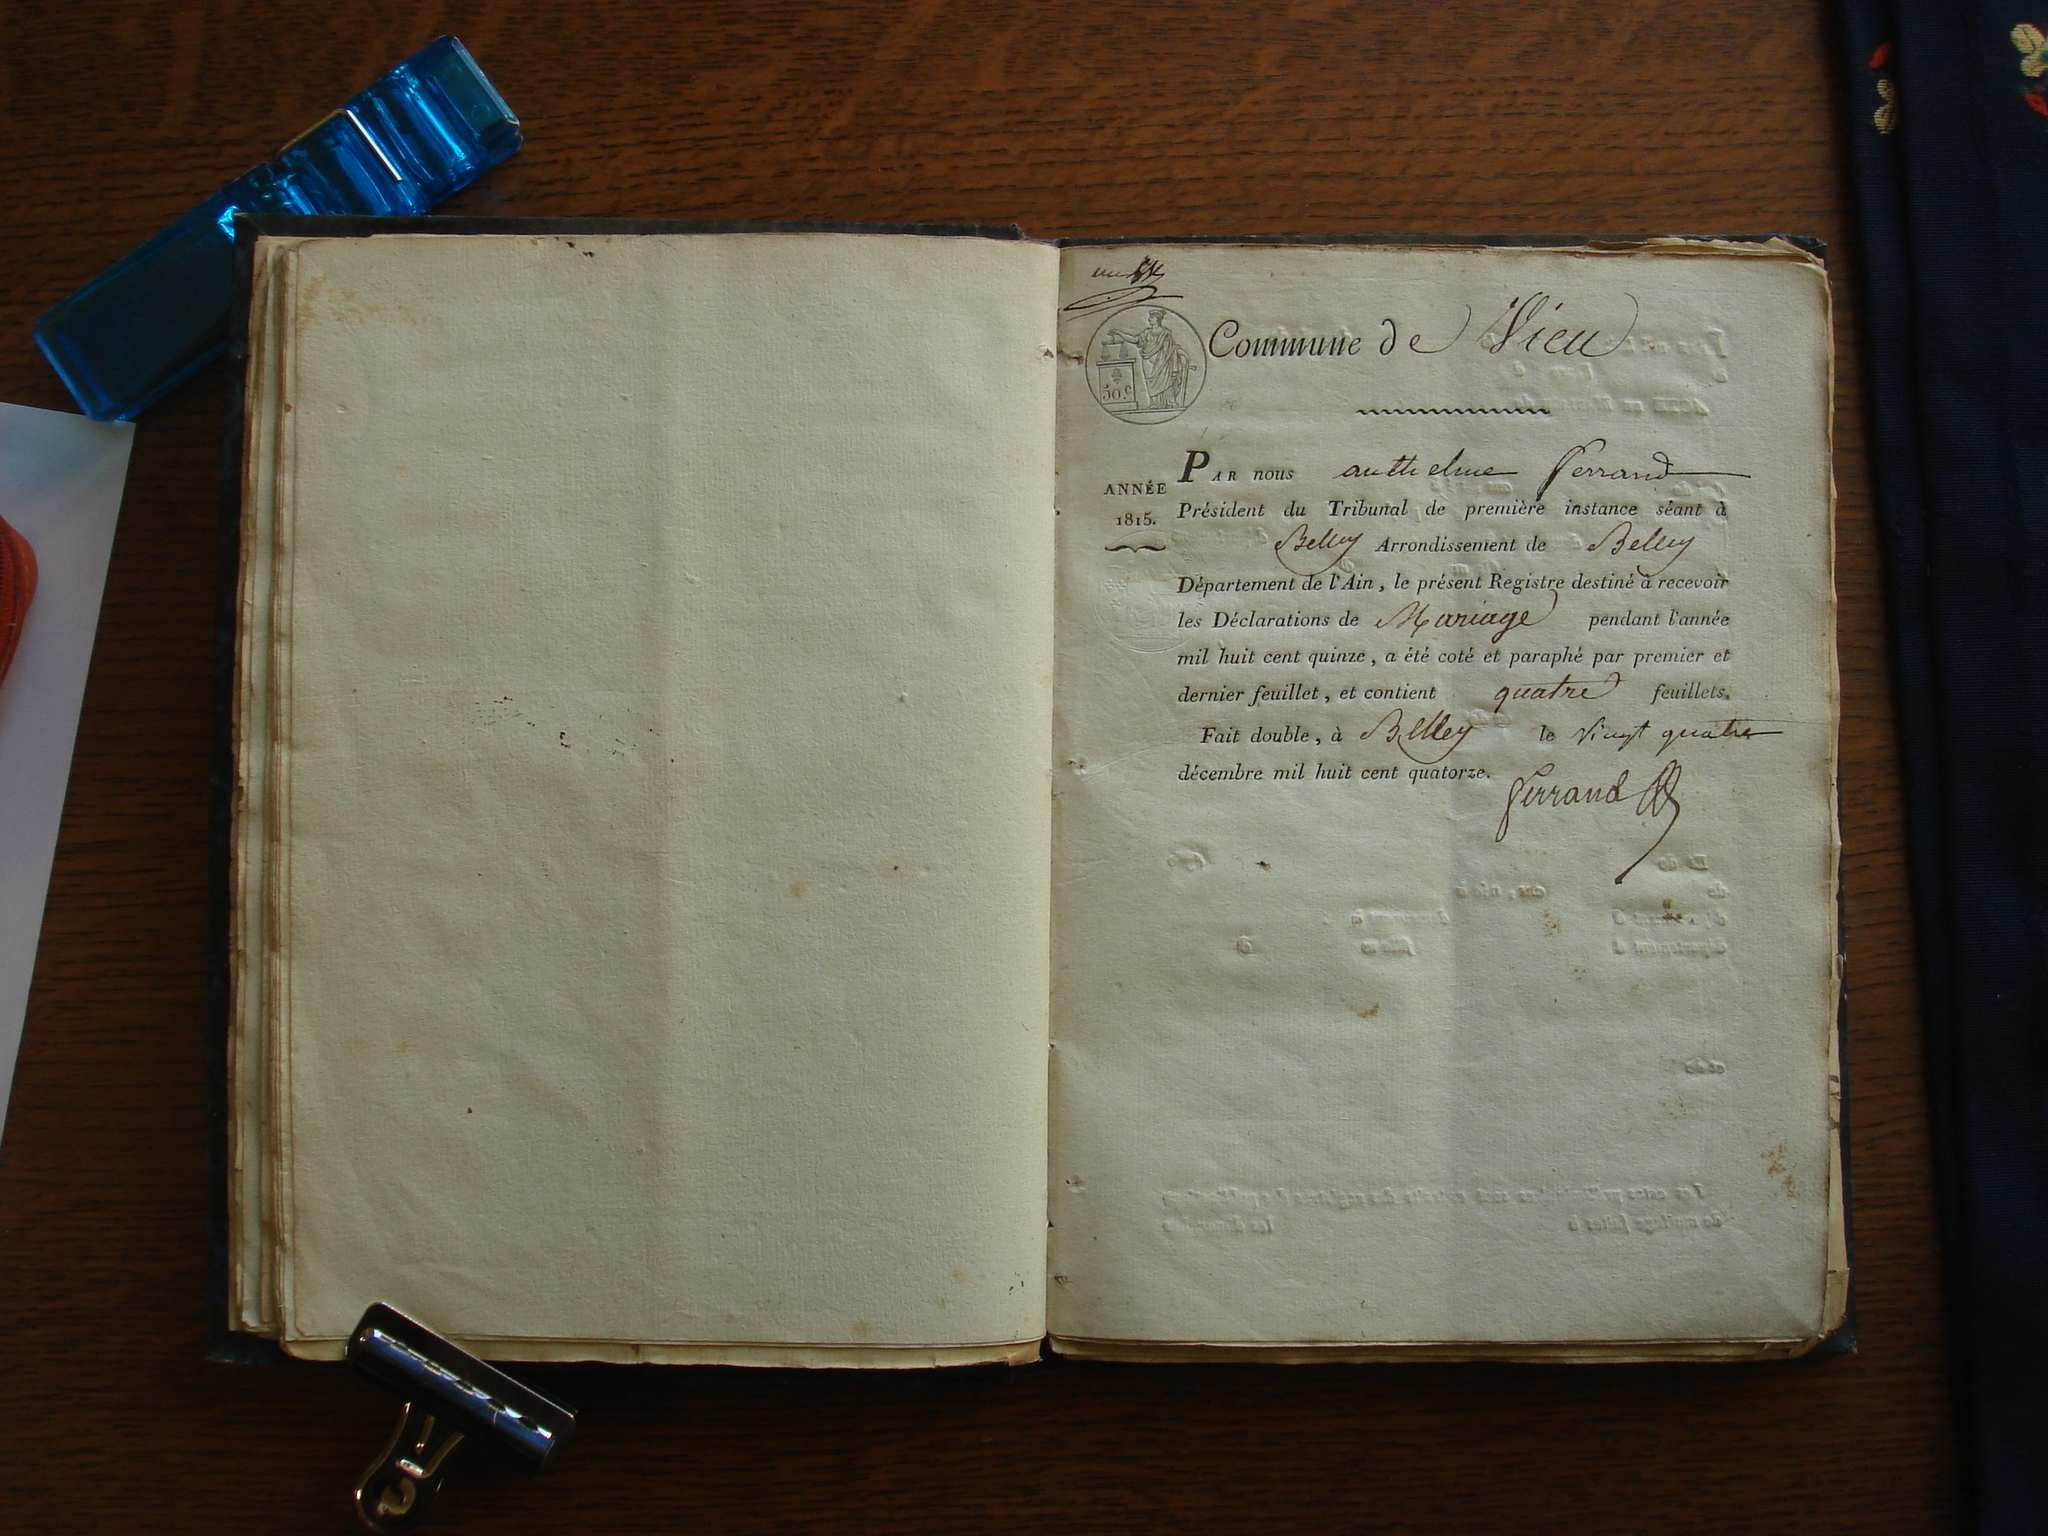 un
50.c
Commune de Vieu
ANNÉE
1815.
PAR nous anthelme Ferrand
Président du Tribunal de première instance séant à
Belley Arrondissement de Belley
Département de l'Ain, le présent Registre destiné à recevoir
les Déclarations de Mariage pendant l'année
mil huit cent quinze, a été coté et paraphé par premier et
dernier feuillet, et contient quatre feuillets.
Fait double, à Belley le vingt quatre
décembre mil huit cent quatorze.
Ferrand